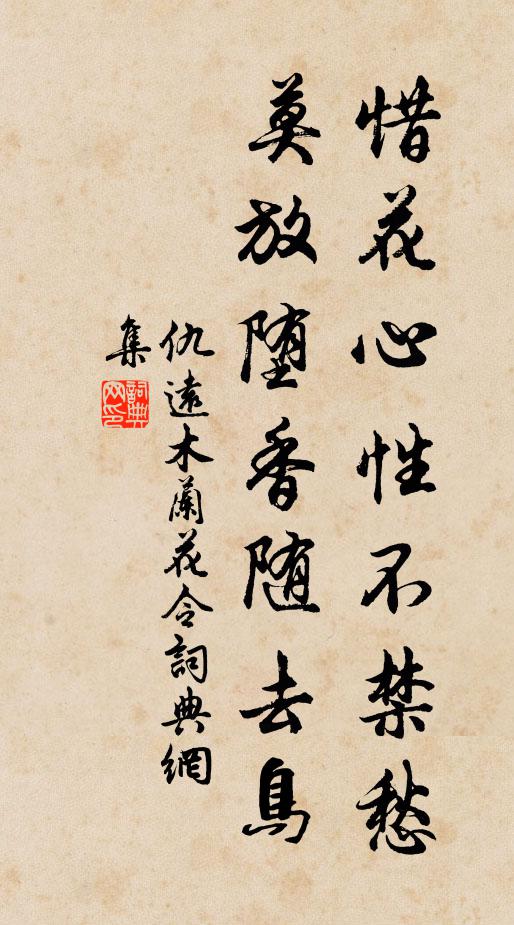 惜花心性不禁愁
莫放堕香随去鳥
仇遠木蘭花令詞典網
集
詞典网印